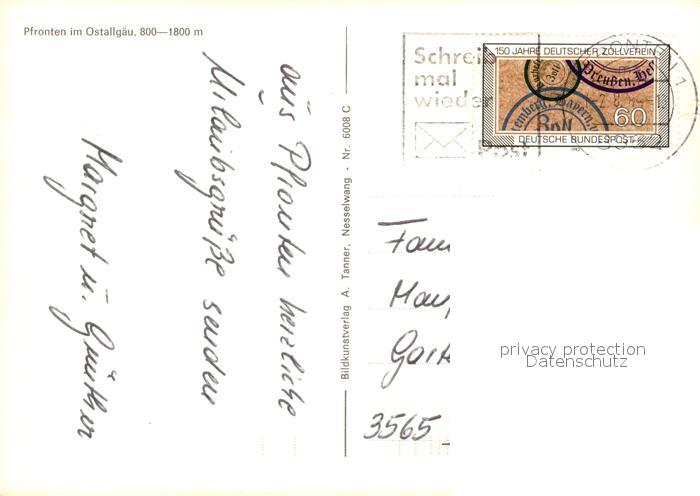 Pfronten im Ostallgäu, 800—1800 m
aus Pfronten herzliche
Urlaubsgrüße senden
Margret u. Günther
Bildkunstverlag A. Tanner, Nesselwang - Nr. 6008 C
Schrei
mal
wieder
Post
150 JAHRE DEUTSCHER ZOLLVEREIN
Zoll
Preußen, Hes
temberg, Bayern,
60
DEUTSCHE BUNDESPOST
Fam
3565
privacy protection
Datenschutz